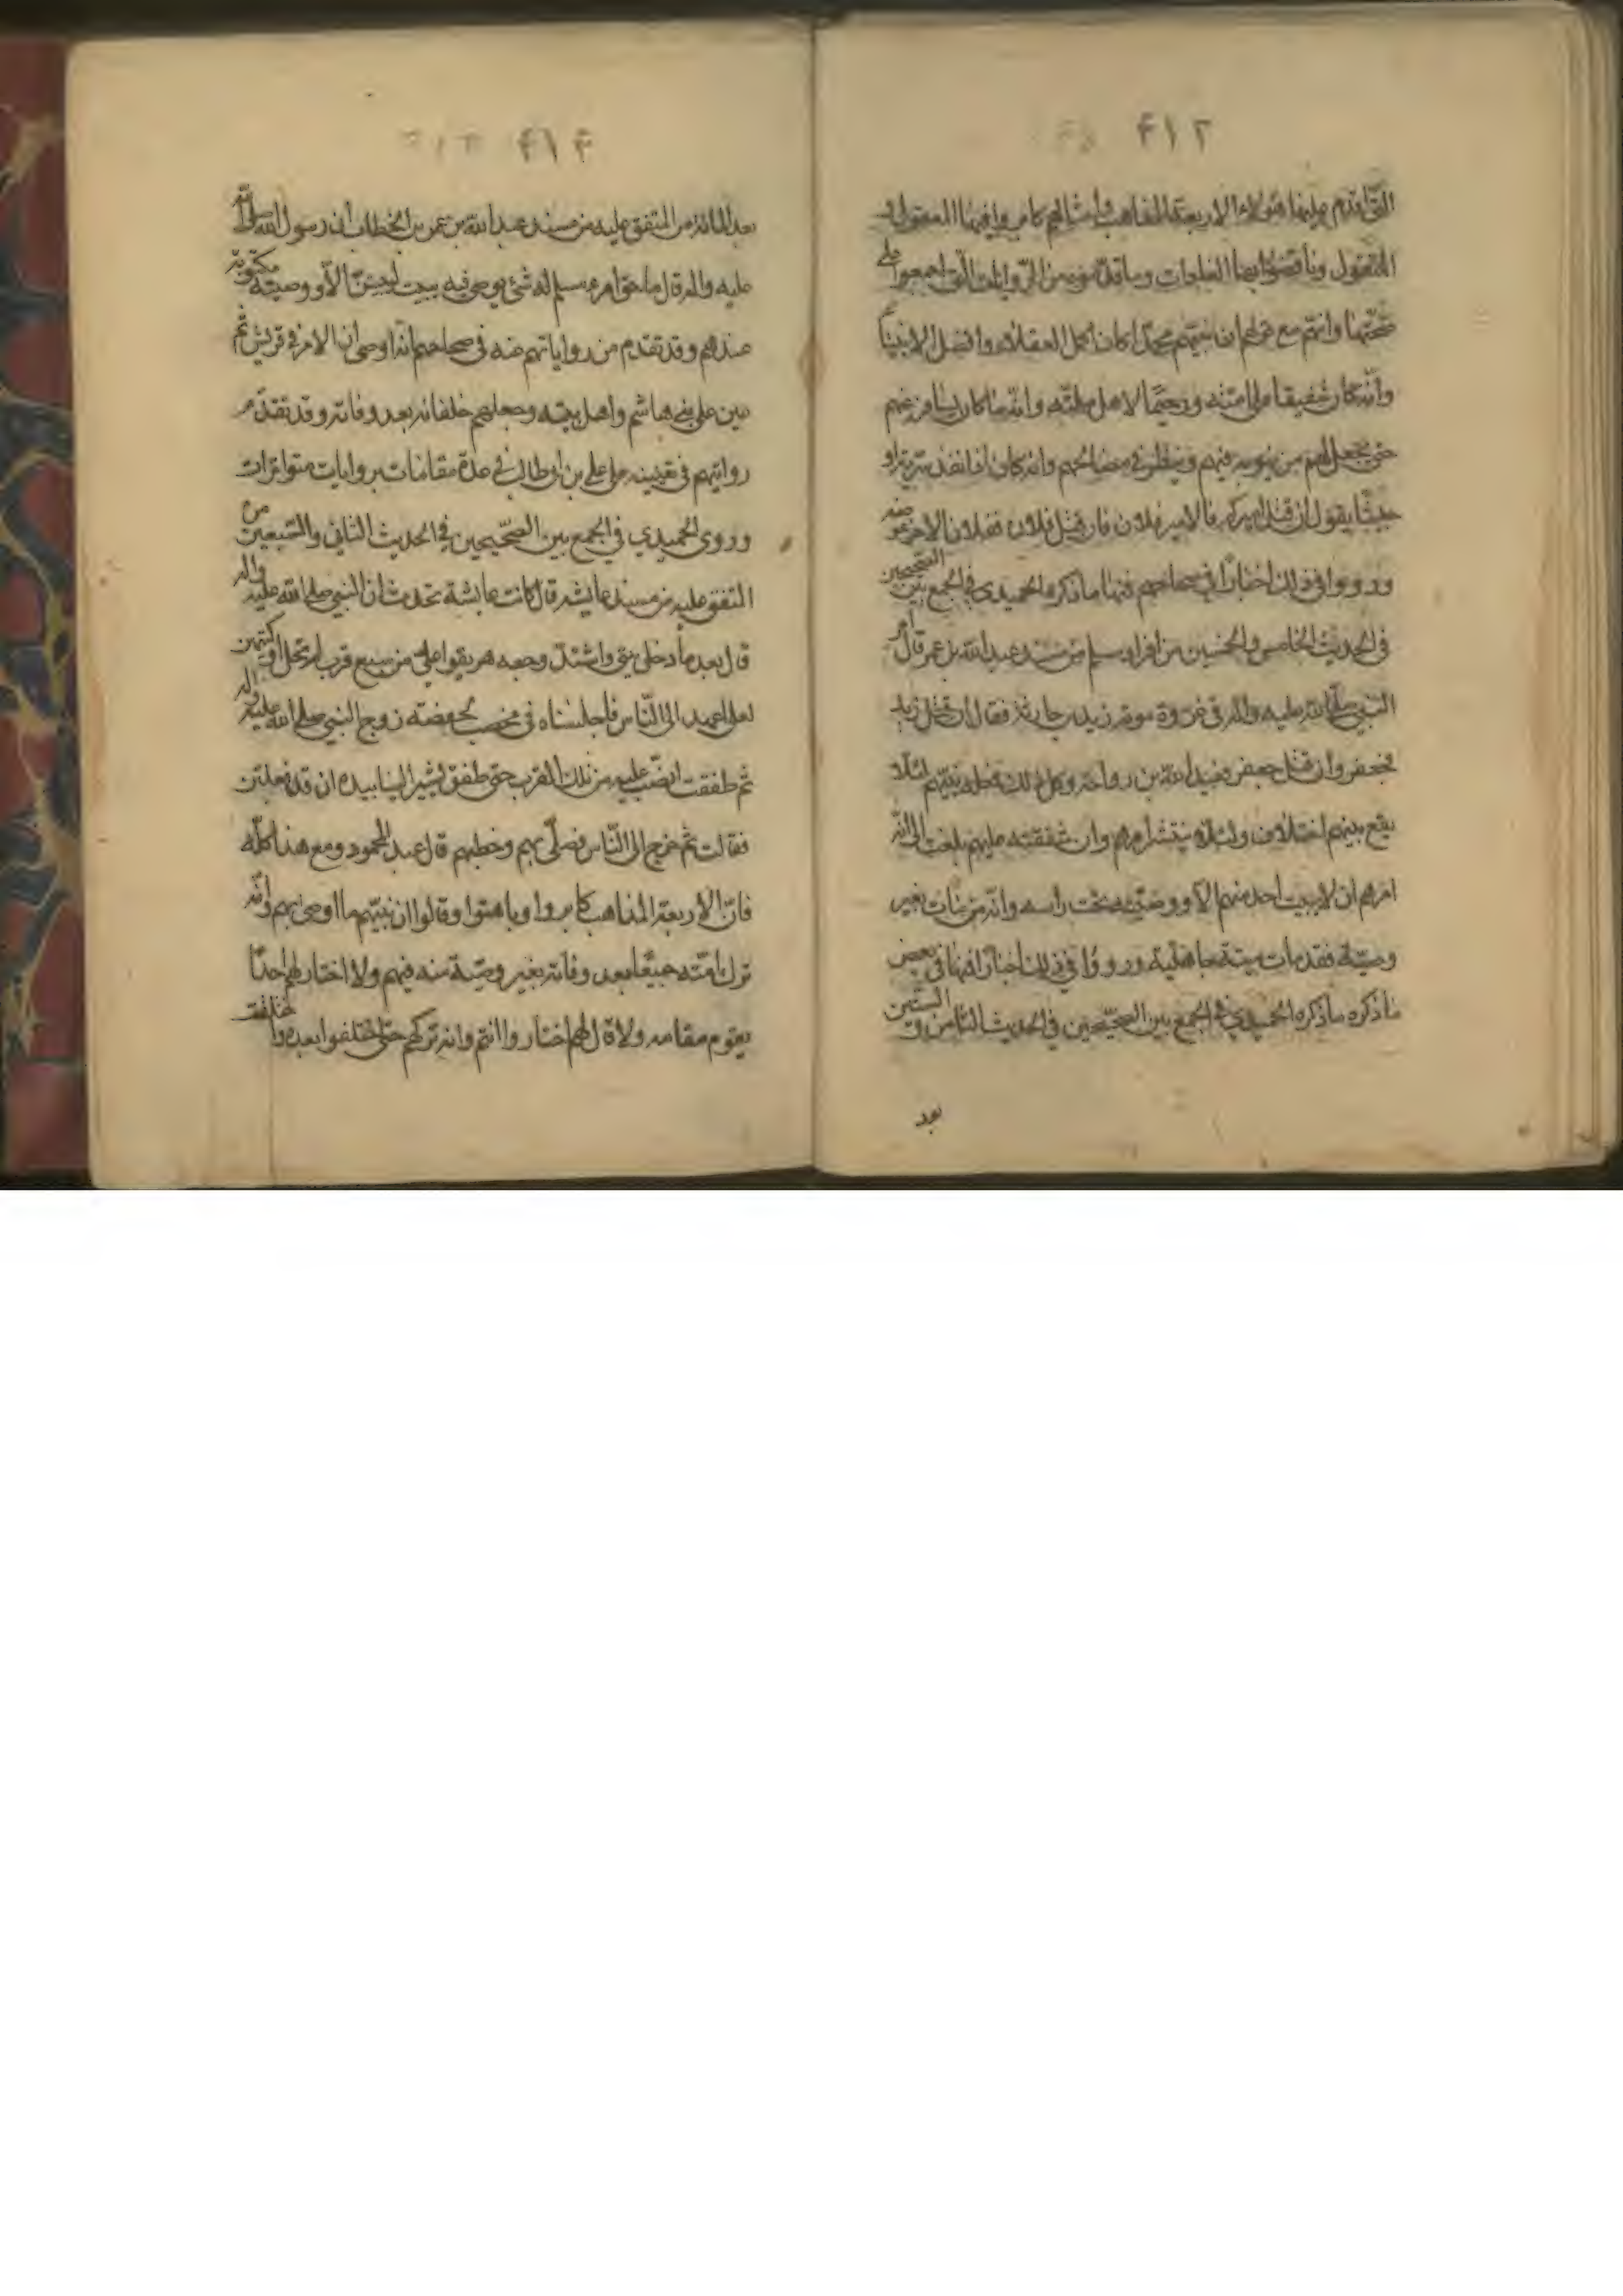 ۴۱۲
التى اقدم عليها هؤلاء الاربعة المذاهب وامثالهم كابروا فيها المعقول و
المنقول وناقضوا بها العادات وما قدموه من الروايات التى اجمعوا على
صحتها وانهم مع قولهم ان نبيهم محمدا كان اكمل العقلاء وافضل الانبياء
وانه كان شفيقا على امته ورحيما لاهل ملته وانه ما كان يسافر عنهم
حتى يجعل لهم من ينوبه فيهم وينظر فى مصالحهم وانه كان اذا نفذ سرية او
جيشا يقول ان قتل اميركم فالامير فلان فان قتل فلان ففلان الاخر عوضه
ورووا فى ذلك اخبارا فى صحاحهم فمنها ما ذكره الحميدى فى الجمع بين الصحيحين
فى الحديث الخامس والخمسين من افراد مسلم من مسند عبد الله بن عمر قال امر
النبى صلى الله عليه واله فى غزوة موتة زيد بن حارثة فقال ان قتل زيد
فجعفر وان قتل جعفر فعبد الله بن رواحة وكل ذلك نبيهم لئلا
يقع بينهم اختلاف ولئلا ينتشر امرهم وان شفقته عليهم بلغت الى انه
امرهم ان لا يبيت احد منهم الا ووصيته تحت راسه وانه من مات بغير
وصية فقد مات ميتة جاهلية ورووا فى ذلك اخبارا فمنها فى بعض
ما ذكره ما ذكره الحميدي فى الجمع بين الصحيحين فى الحديث الثامن و الستين
بعد
۴۱۳
بعد المائة من المتفق عليه من مسند عبد الله بن عمر بن الخطاب ان رسول الله صلى الله
عليه واله قال ما حق امرء مسلم له شئ يوصى فيه يبيت ليلتين الا ووصيته مكتوبة
عندهم وقد تقدم من رواياتهم عنه فى صحاحهم انه اوصى ان الامر فى قريش ثم
عين على بنى هاشم واهل بيته وجعلهم خلفائه بعد وفاته وقد تقدم
روايتهم فى تعيينه على علي بن ابى طالب فى عدة مقامات بروايات متواترات
وروى الحميدي فى الجمع بين الصحيحين فى الحديث الثانى والسبعين من
المتفق عليه من مسند عايشة قال كانت عايشة تحدث ان النبى صلى الله عليه واله
قال بعد ما دخل بيتى واشتد وجعه هريقوا على من سبع قرب لم تحلل اوكيتهن
لعلى اعهد الى الناس فاجلسناه فى مخضب لحفصة زوج النبى صلى الله عليه واله
ثم طفقت انصب عليه من تلك القرب حتى طفق يشير الينا بيده ان قد فعلتن
فقالت ثم خرج الى الناس فصلى بهم وخطبهم قال عبد المحمود ومع هذا كله
فان الاربعة المذاهب كابروا وباهتوا وقالوا ان نبيهم ما اوصى بهم وانه
ترك امته جميعا بعد وفاته بغير وصية منه فيهم ولا اختار لهم احدا
يقوم مقامه ولا قال لهم اختاروا انتم وانه تركهم حتى اختلفوا بعده و